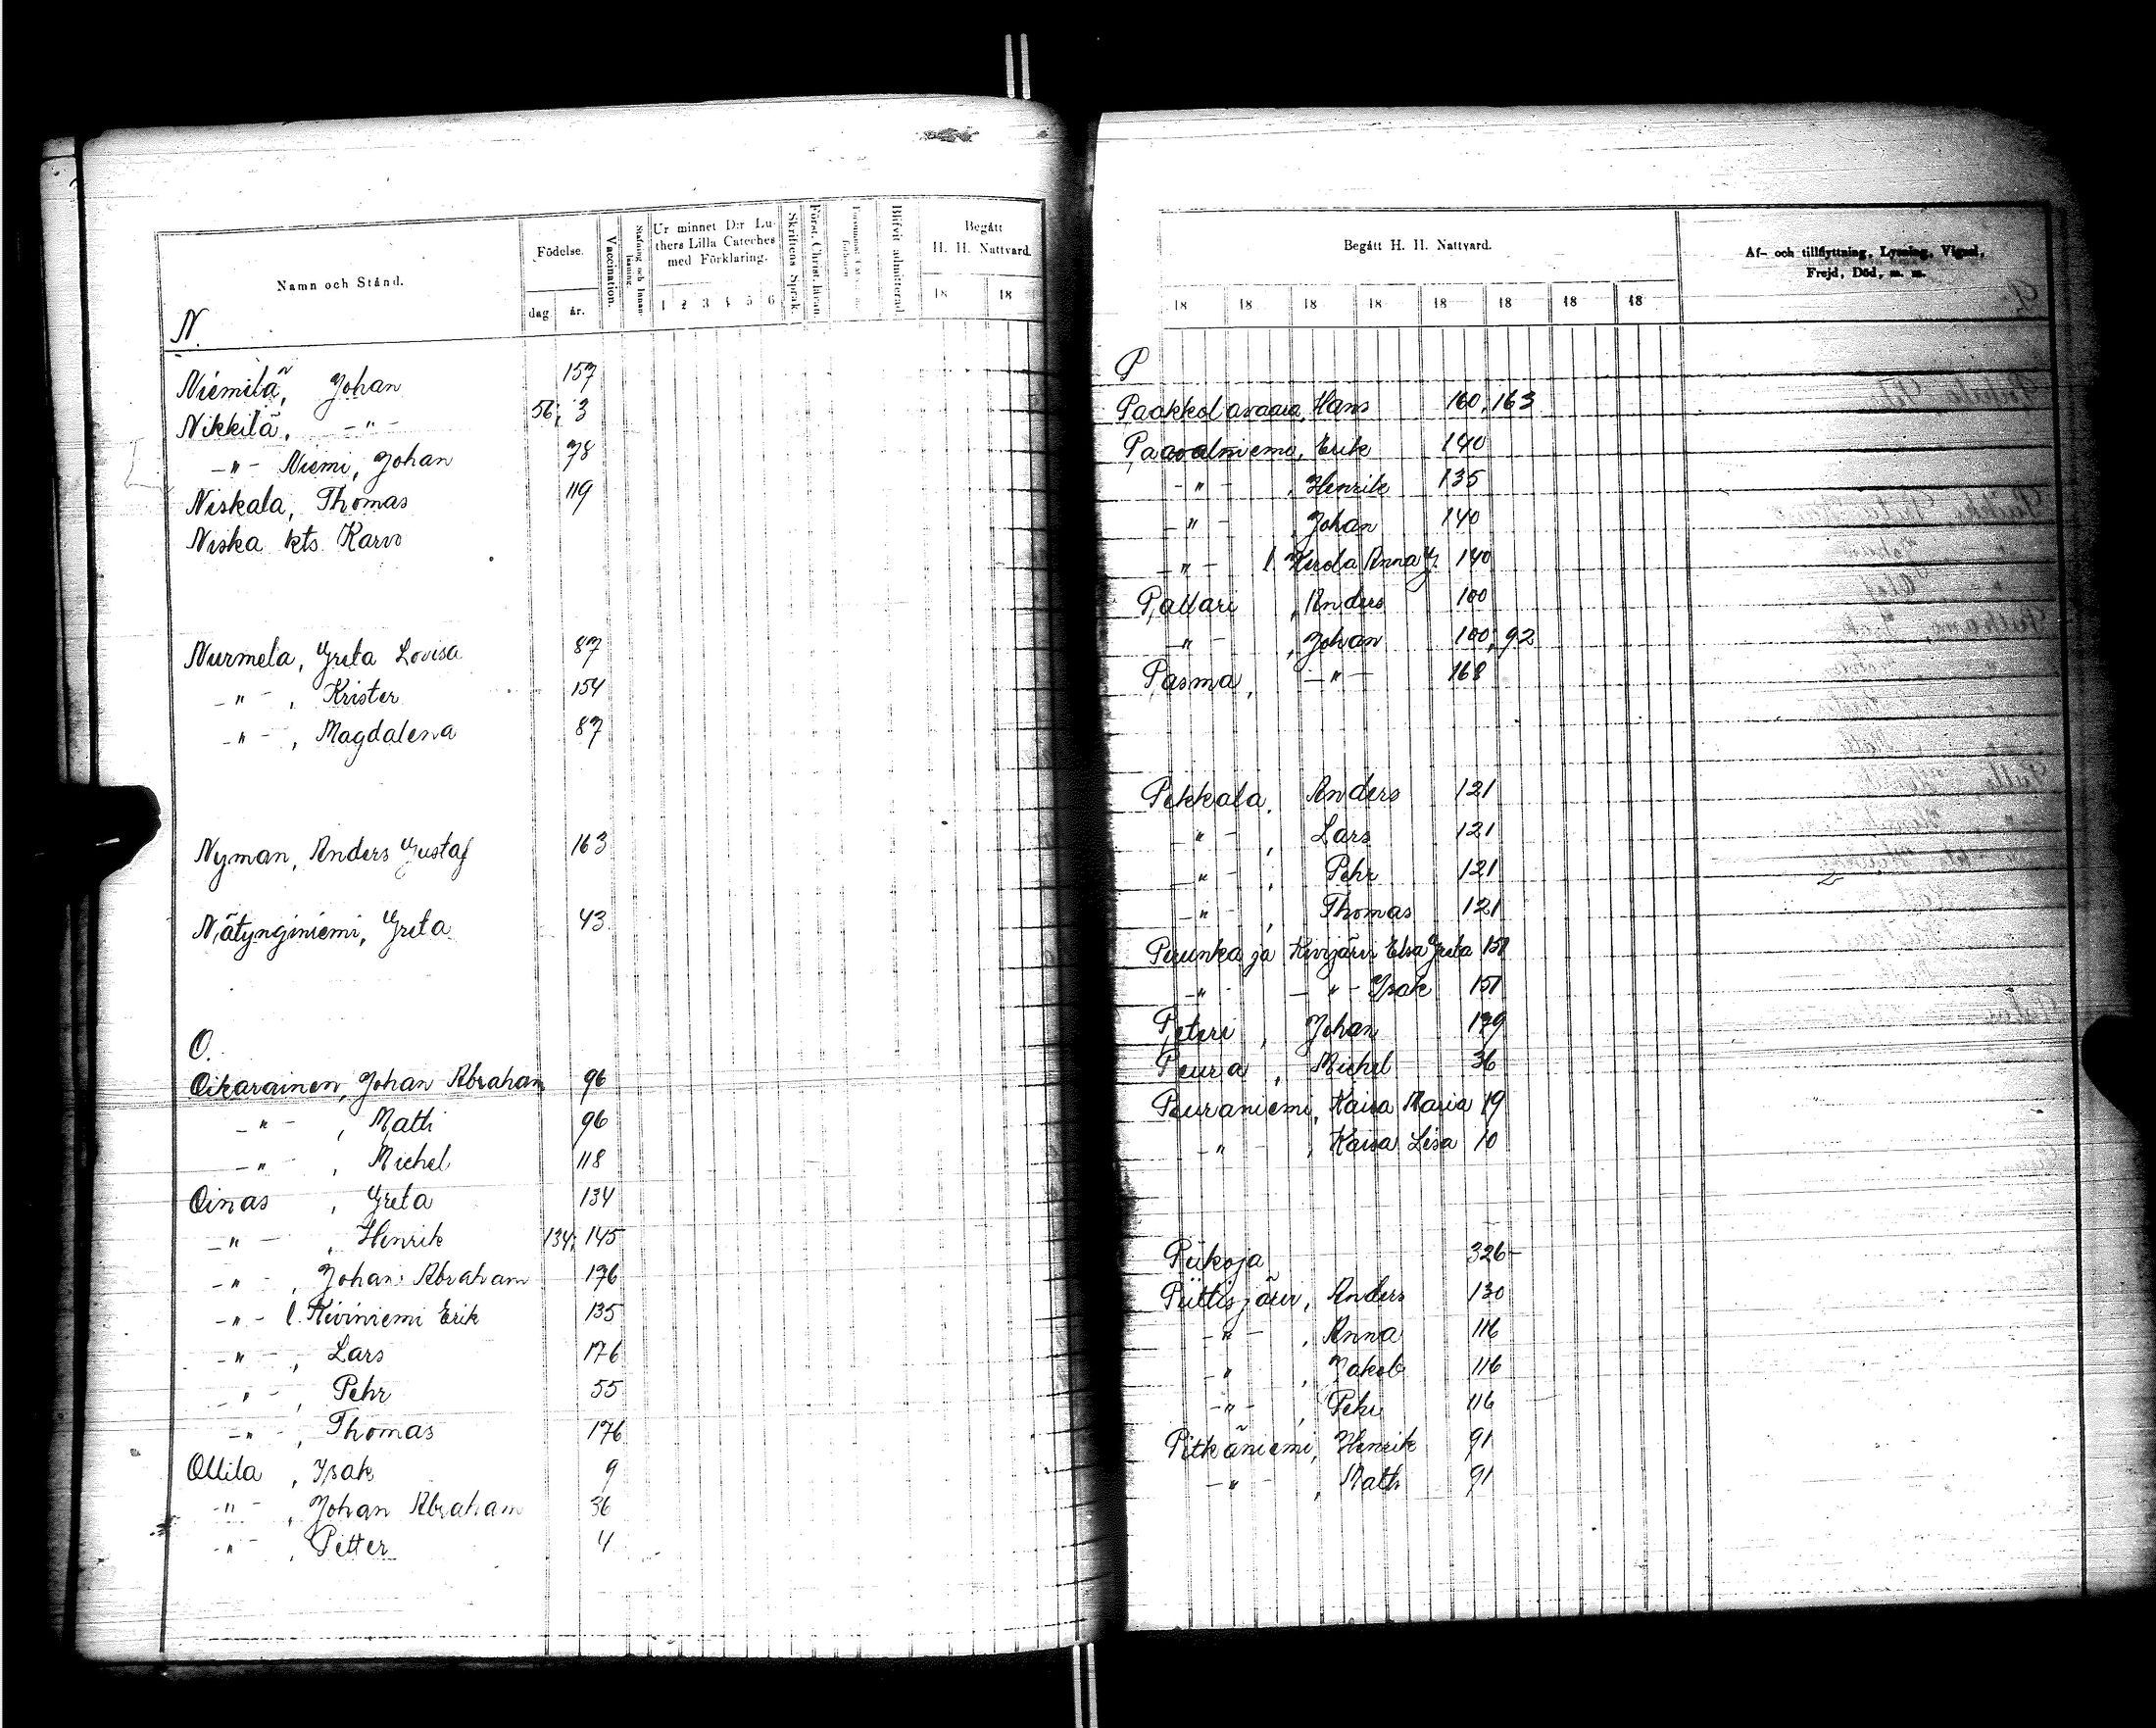 Namn och Stånd.
Födelse.
dag
år.
Vaccination.
Stafning och Innan-läsning.
Ur minnet D:r Lu-
thers Lilla Cateches
med Förklaring.
1 2 3 4 5 6
Skriftens Språk.
Först. Christ. läran.
Blifvit admitterad.
Begått
H. H. Nattvard.
18 18
N.
Niemilä, Johan 157
Nikkilä, -"- 56, 3
-"- Niemi, Johan 78
Niskala, Thomas 119
Niska kts. Karvo
Nurmela, Greta Lovisa 87
-"-, Krister 154
-"-, Magdalena 87
Nyman, Anders Gustaf 163
Nätynginiemi, Greta 43
O.
Oikarainen, Johan Abraham 96
-"-, Math 96
-"-, Michel 118
Oinas, Greta 134
-"-, Henrik 134, 145
-"-, Johan Abraham 176
-"- l. Kiviniemi Erik 135
-"-, Lars 176
-"-, Pehr 55
-"-, Thomas 176
Ollila, Isak 9
-"-, Johan Abraham 36
-"-, Petter 4
Begått H. H. Nattvard.
18 18 18 18 18 18 18 18
Af- och tillflyttning, Lysning, Vigsel,
Frejd, Död, m. m.
P
Paakkolavaara, Hans 160, 163
Paavalniemi, Erik 140
-"-, Henrik 135
-"-, Johan 140
-"- l. Kerola Anna G. 140
Pallari, Anders 100
-"-, Johan 100, 92
Pasma, -"- 168
Pekkala, Anders 121
-"-, Lars 121
-"-, Pehr 121
-"-, Thomas 121
Perunka ja Kivijärvi Elsa Greta 151
-"- -"- Isak 151
Peteri, Johan 179
Peura, Michel 36
Peuraniemi, Kaisa Maria 19
-"-, Kaisa Lisa 10
Piikoja 326-
Piittisjärvi, Anders 130
-"-, Anna 116
-"-, Jakob 116
-"-, Pehr 116
Pitkäniemi, Henrik 91
-"-, Math 91